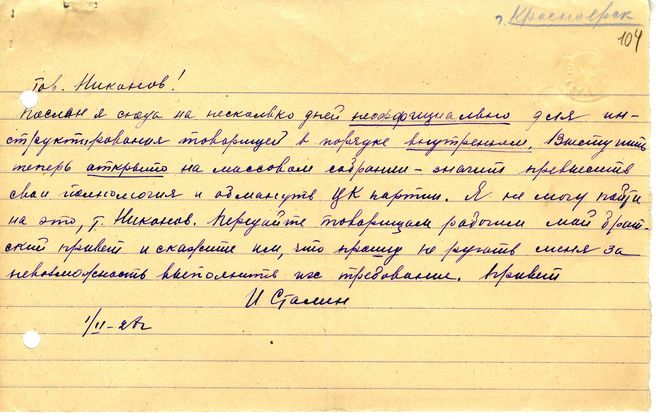 г. Красноярск
104
Тов. Никонов!
Послан я сюда на несколько дней неофициально для ин-
структирования товарищей в порядке внутреннем. Выступить
теперь открыто на массовом собрании – значит превысить
свои полномочия и обмануть ЦК партии. Я не могу пойти
на это, т. Никонов. Передайте товарищам рабочим мой брат-
ский привет и скажите им, что прошу не ругать меня за
невозможность выполнить их требование. Привет
И Сталин
1/II-28г